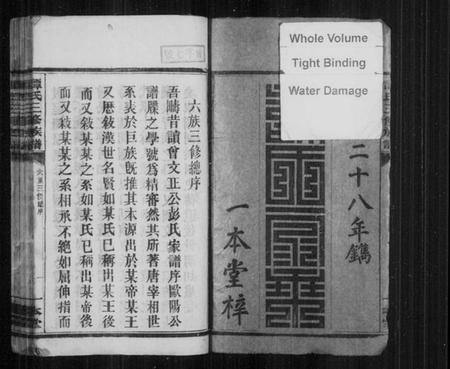 Whole Volume
Tight Binding
Water Damage
二十八年鐫
一本堂梓
六族三修總序
吾疇昔讀曾文正公彭氏家譜序歐陽公
譜牒之學號為精審然其所著唐宰相世
系表於巨族既推其本源出於某帝某王
又歷敍漢世名賢如某氏已稱出某王後
而又敍某某之系如某氏已稱出某帝後
而又敍某某之系相承不絕如屈伸指而
譚氏三修族譜
六族三修總序
一本堂